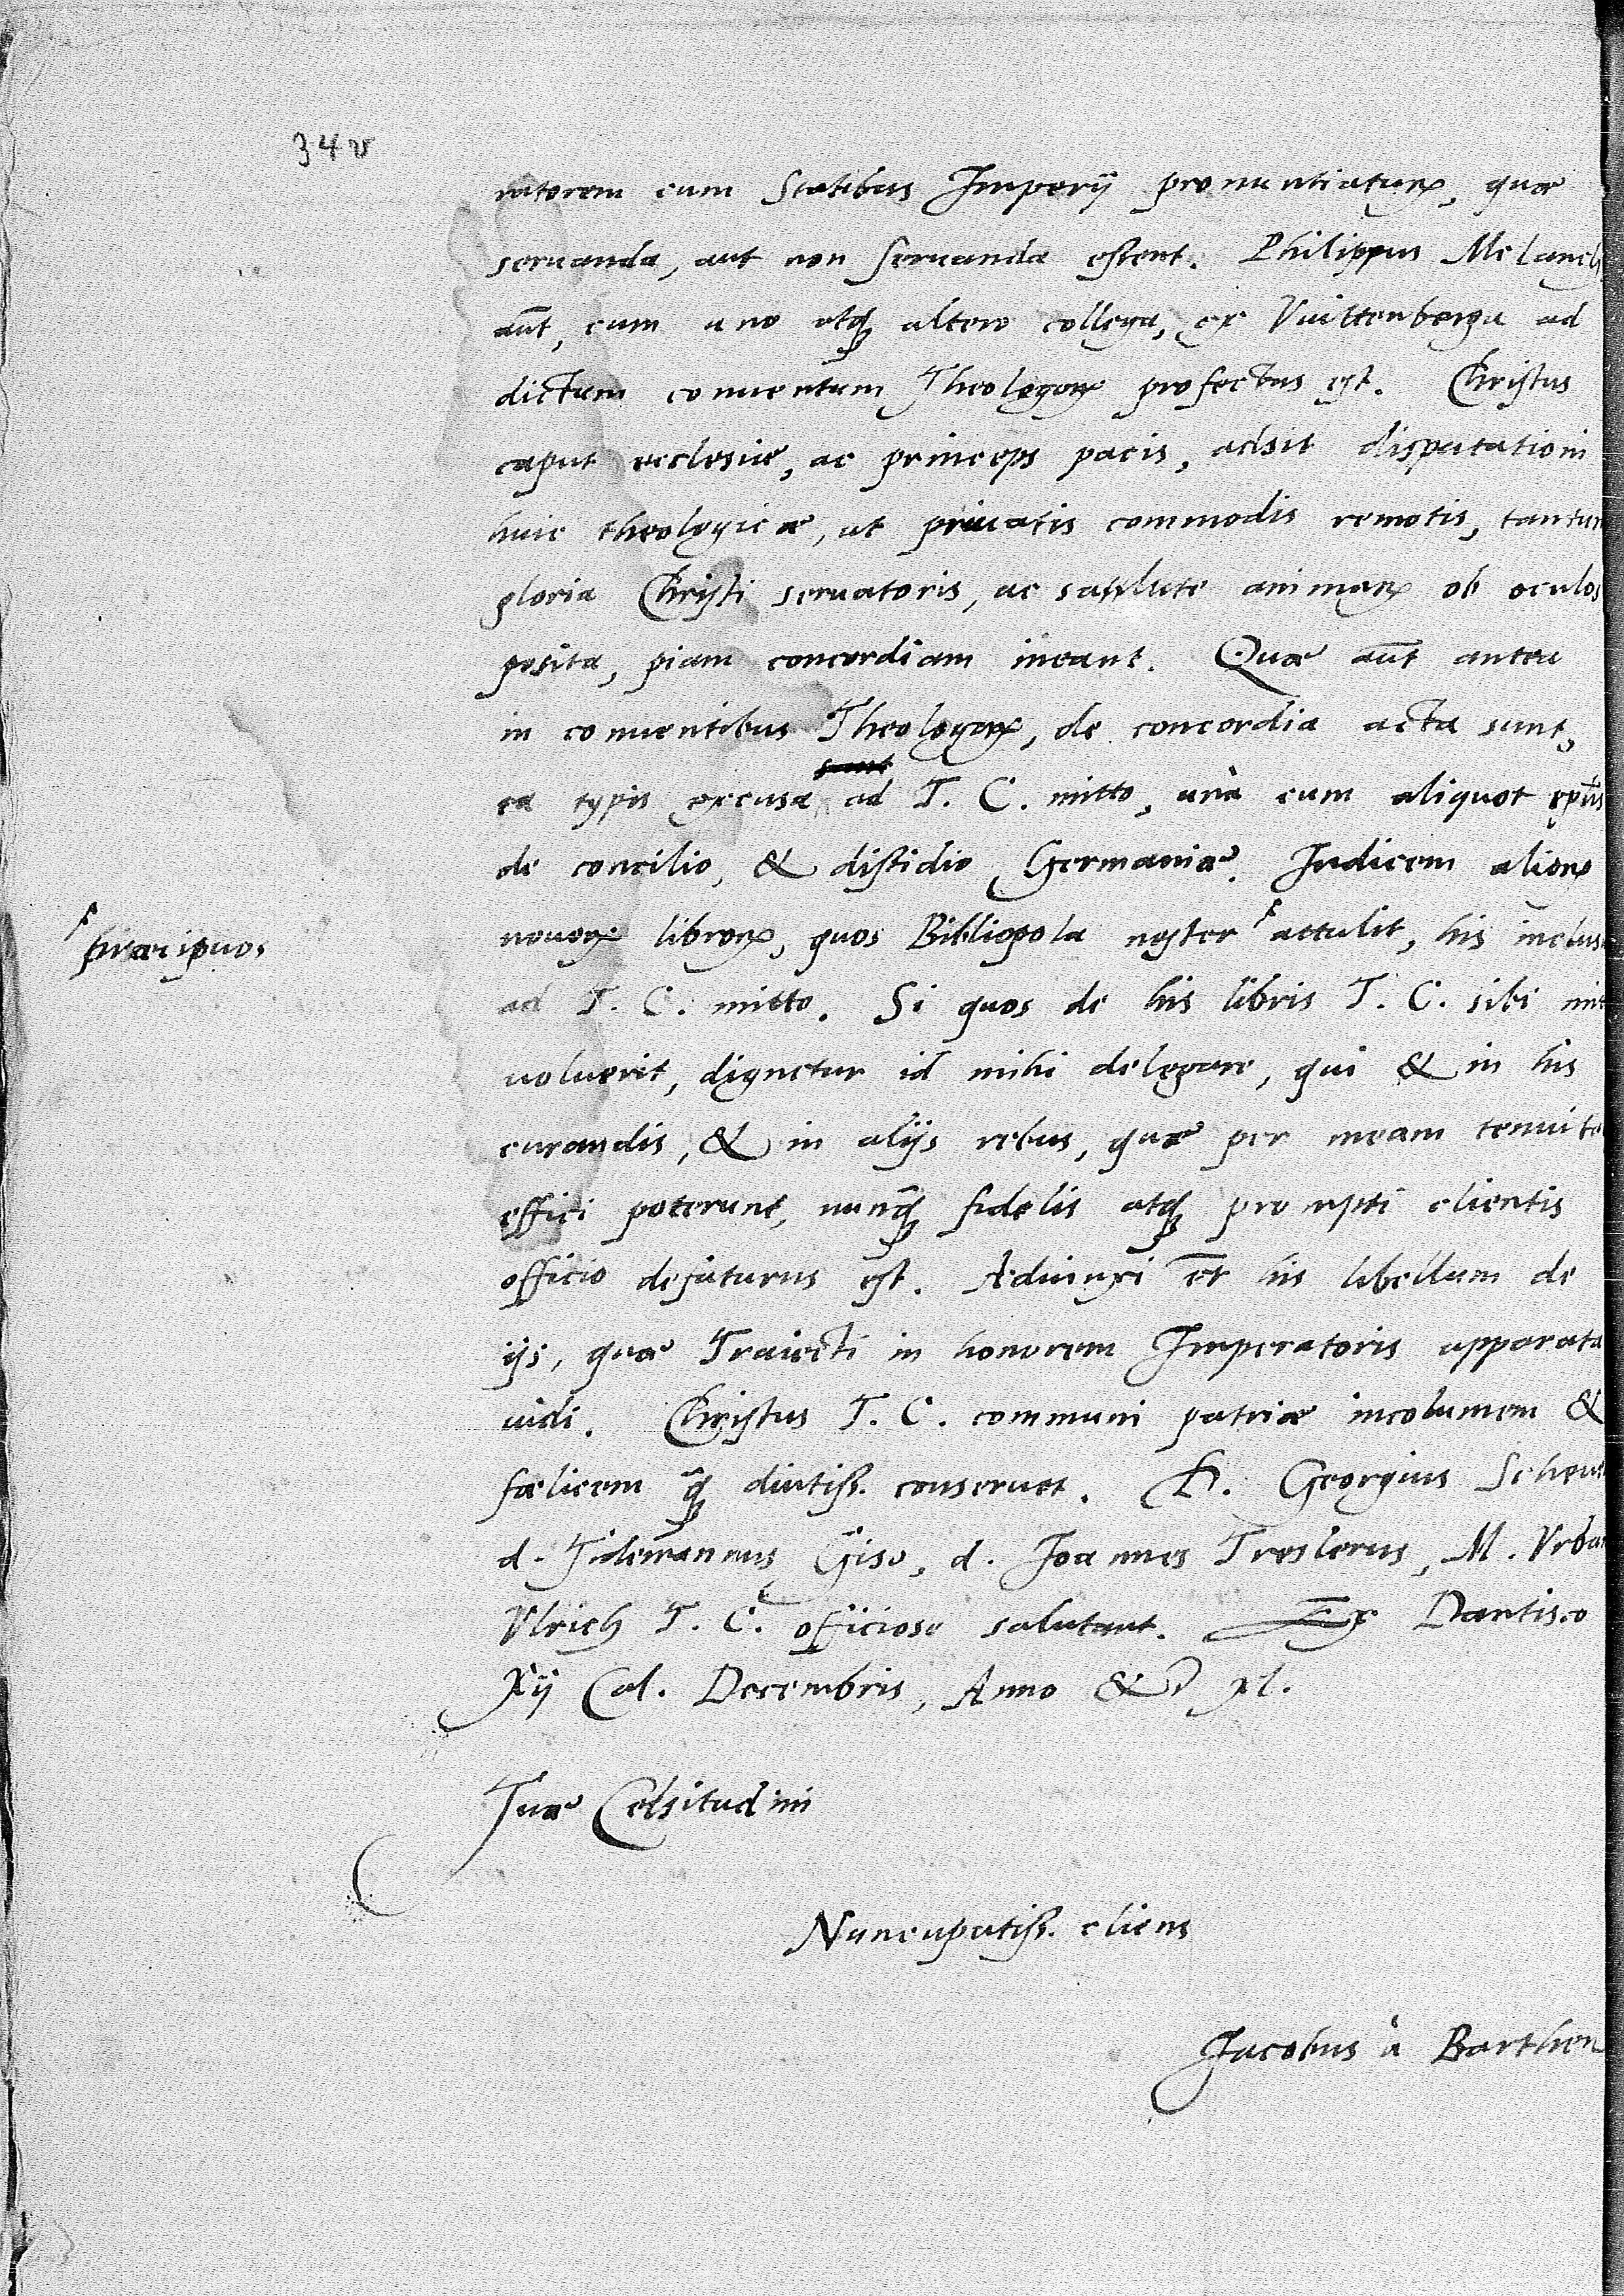 34v
ratorem cum statibus Imperij pronuntiaturū, quæ
seruanda, aut non seruanda essent. Philippus Melanch
aūt, cum uno atq̨ altero collega, ex Vuittenberga ad
dictum conuentum Theologorū profectus est. Christus
caput ecclesiæ, ac princeps pacis, adsit disputationi
huic theologicæ, ut priuatis commodis remotis, tantum
gloria Christi seruatoris, ac salute animarū ob oculos
posita, piam concordiam ineant. Quæ aūt antea
in conuentibus Theologorū, de concordia acta sunt,
ea typis excusa ad T. C. mitto, unà cum aliquot
de concilio, & dissidio Germaniæ. Indicem aliorū
nouorū librorū, quos Bibliopola noster attulit, his inclus
præcipuos
ad T. C. mitto. Si quos de his libris T. C. sibi mit
uoluerit, dignetur id mihi delegare, qui & in his
curandis, & in alijs rebus, quæ per meam tenuita
effici poterunt, nunq̄ fidelis atq̨ prompti clientis
officio defuturus est. Adiunxi et̄ his libellum de
ijs, quæ Traiecti in honorem Imperatoris apparata
uidi. Christus T. C. communi patriæ incolumem &
fœlicem q̄ diutiss. conseruet. D. Georgius Scheue
d. Tidemannus Gise, d. Joannes Treslerus, M. Vrban
Vlrich T. C. officiose salutant. Ex Dantisco
xij Cal. Decembris, Anno &c xl.
Tuæ Celsitudini
Nuncupatiss. cliens
Jacobus à Barthen